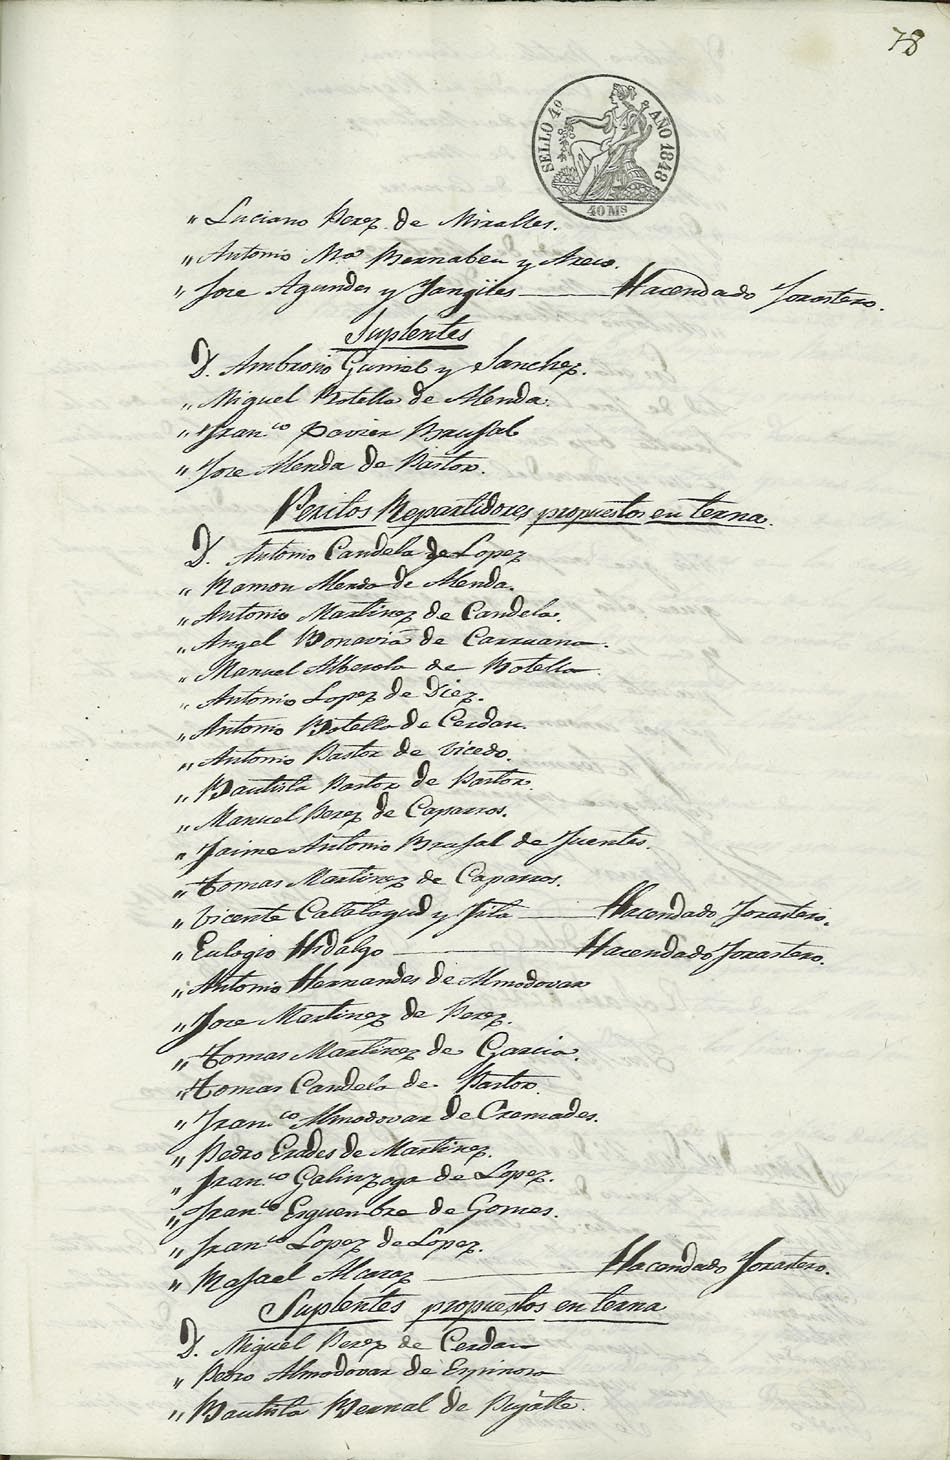 78
SELLO 4º AÑO 1848
40 Ms
" Luciano Perez de Miralles.
" Antonio Mª Bernabeu y
" Jose Agundes y Hacendado Forastero.
Suplentes
D. Ambrosio Gumiel y Sanchez.
" Miguel Botella de Menda.
" Franco Pavier Brufal
" Jose Menda de Pastor.
Peritos Repartidores propuestos en terna.
D. Antonio Candela de Lopez
" Ramon de Menda.
" Antonio Martinez de Candela.
" Angel Bonavia de Carruana.
" Manuel Alberola de Botella.
" Antonio Lopez de Diez.
" Antonio Botella de Cerdan.
" Antonio Pastor de Vicedo.
" Bautista Pastor de Pastor.
" Manuel Perez de Caparros.
" Jaime Antonio Brufal de Fuentes.
" Tomas Martinez de Caparros.
" Vicente Calatayud y Hacendado Forastero.
" Eulogio Hidalgo Hacendado Forastero.
" Antonio Hernandes de Almodovar
" Jose Martinez de Perez.
" Tomas Martinez de Garcia.
" Tomas Candela de Pastor
" Franco Almodovar de Cremades.
" Pedro Erades de Martinez.
" Franco Galinzoga de Lopez.
" Franco Esguembre de Gomes.
" Franco Lopez de Lopez.
" Rafael Alcaraz Hacendado Forastero.
Suplentes propuestos en terna
D. Miguel Perez de Cerdan
" Pedro Almodovar de Espinosa
" Bautista Bernal de Pujalte.